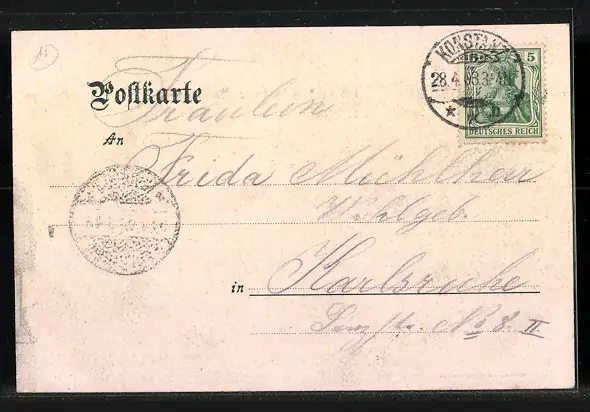 15
KONSTANZ
28.4.03.3-4N.
* b
5
DEUTSCHES REICH
Postkarte
Fräulein
An
Frida Mühlherr
Wohlgeb.
in Karlsruhe
Lenzstr. No 8. II